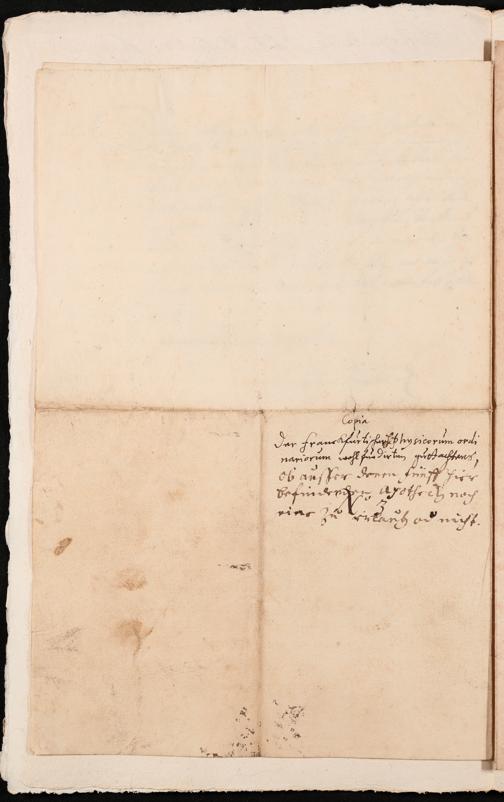 Copia
Der Franckfurtischen Physicorum ordi
nariorum wohl fundirten guttachtens,
ob ausser denen fünff hier
befindenden Apothecken noch
eine zu erlauben od nicht.